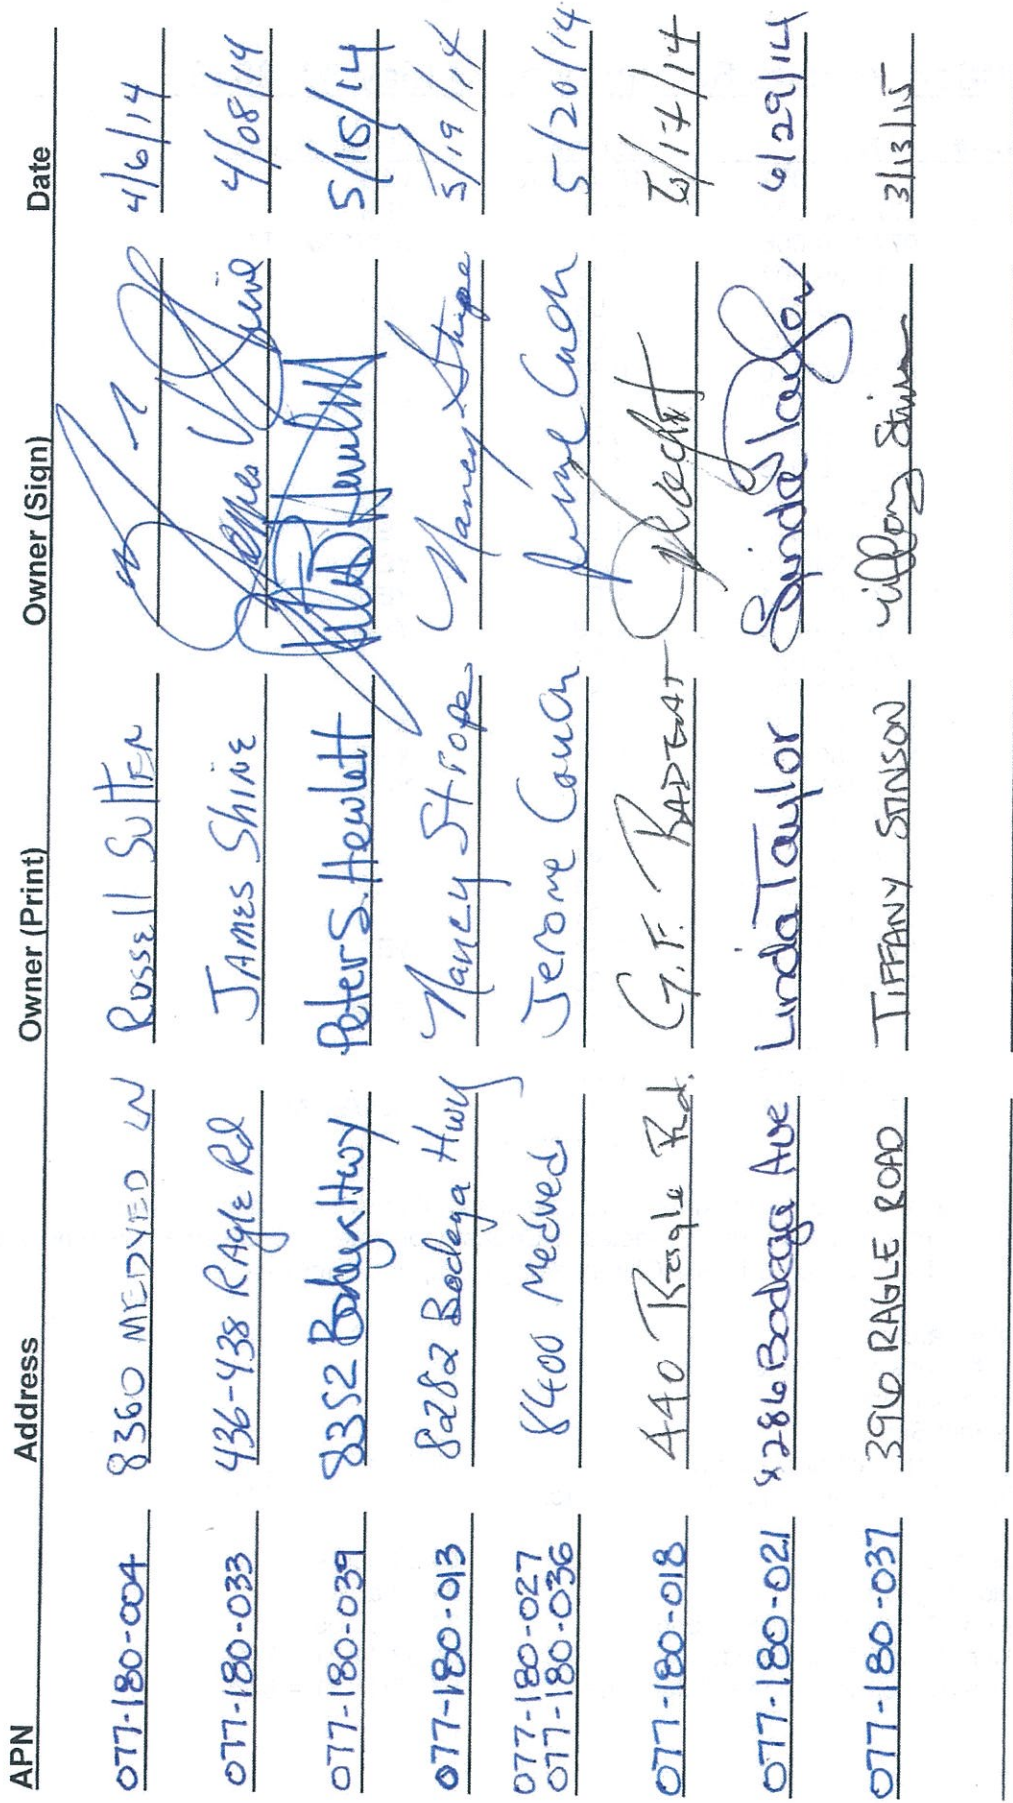 APN Address Owner (Print) Owner (Sign) Date
077-180-004 8360 MEDVED LN RUSSELL SUTTER 4/6/14
077-180-033 436-438 RAgle Rd JAMES SHINE James Shine 4/08/14
077-180-039 8352 Bodega Hwy Peter S. Hewlett 5/15/14
077-180-013 8282 Bodega Hwy Nancy Strope Nancy Strope 5/19/14
077-180-027
077-180-036 8400 Medved Jerome 5/20/14
077-180-018 440 Ragle Rd. G.F. /14
077-180-021 8286 Bodega Ave Linda Taylor Linda Taylor 6/29/14
077-180-037 396 RAGLE ROAD TIFFANY STINSON Tiffany Stinson 3/13/15